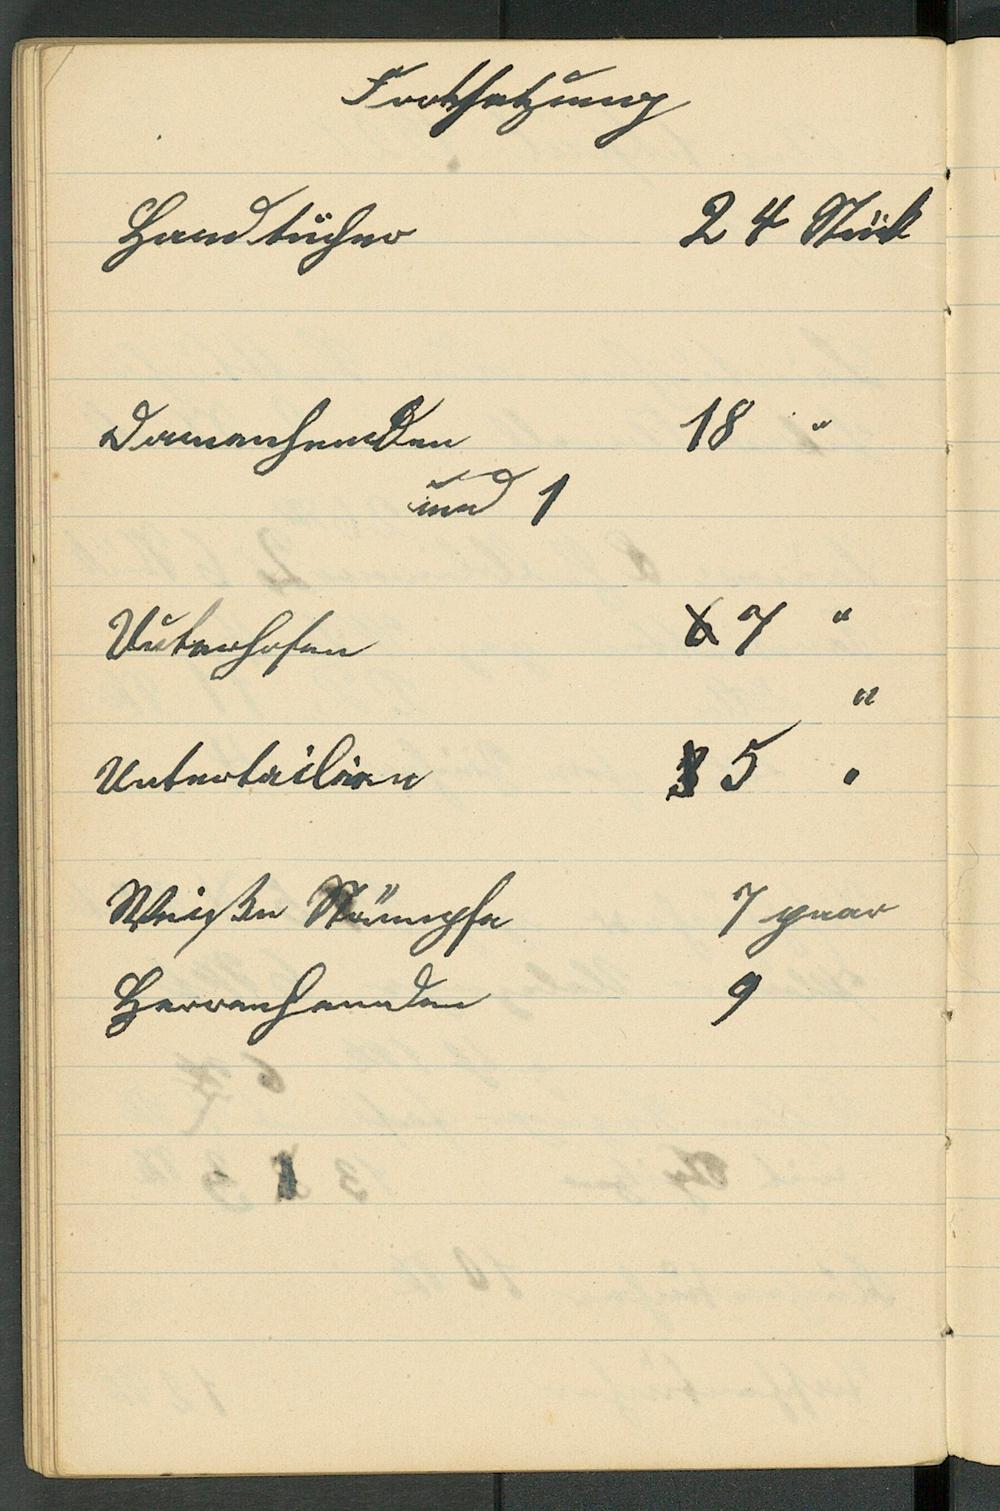 Fortsetzung
Handtücher 24 Stük
Damenhemden 18 "
und 1
Unterhosen 6 7 "
"
Untertailien 3 5 "
Weißen Strümpfe 7 paar
Herrenhemden 9